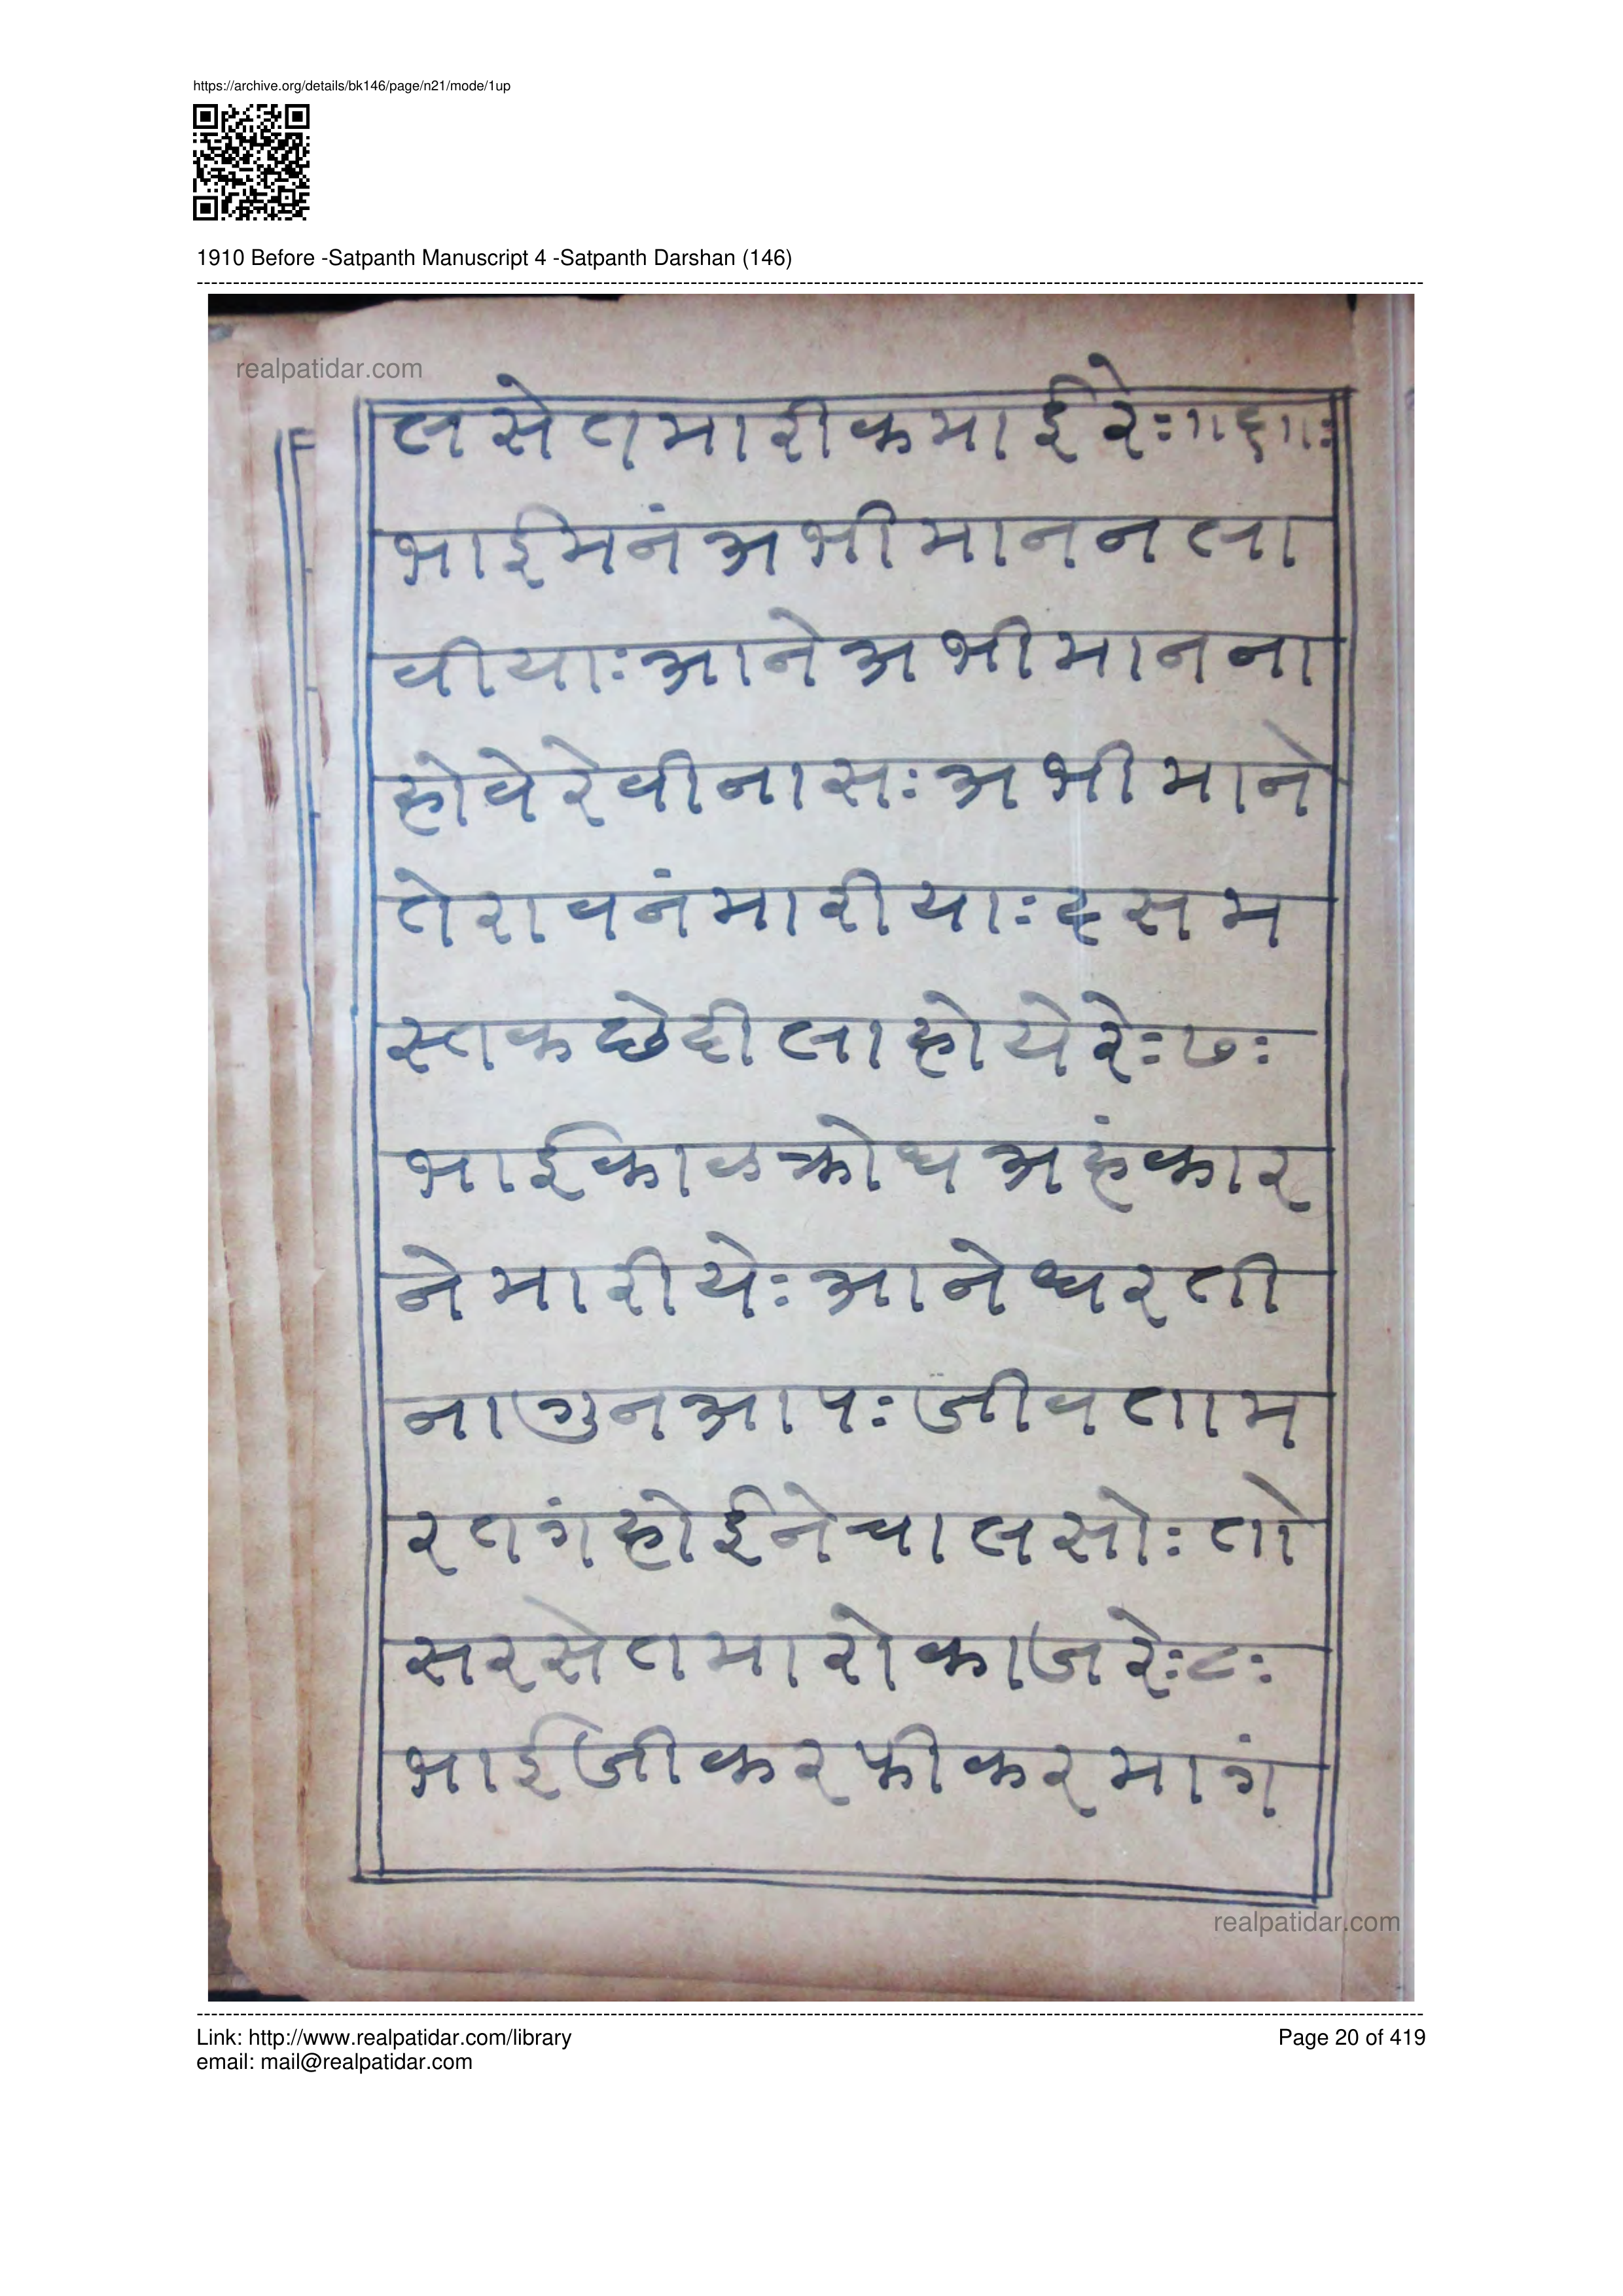 https://archive.org/details/bk146/page/n21/mode/1up
1910 Before -Satpanth Manuscript 4 -Satpanth Darshan (146)
realpatidar.com
लसेतमारीकमाईरेः॥६॥ः
भाईमनंअभीमाननला
वीयाःआनेअभीमानना
होवेरेवीनासःअभीमाने
तेरावनंमारीयाःदसम
स्तकछेदीलाहोयेरेः७ः
भाईकाळक्रोधअहंकार
नेमारीयेःआनेधरती
नागुनआपःजीवताम
रतगंहोईनेचालसोःतो
सरसेतमारोकाजरेः८ः
भाईजीकरफीकरमागं
realpatidar.com
Link: http://www.realpatidar.com/library
Page 20 of 419
email: mail@realpatidar.com